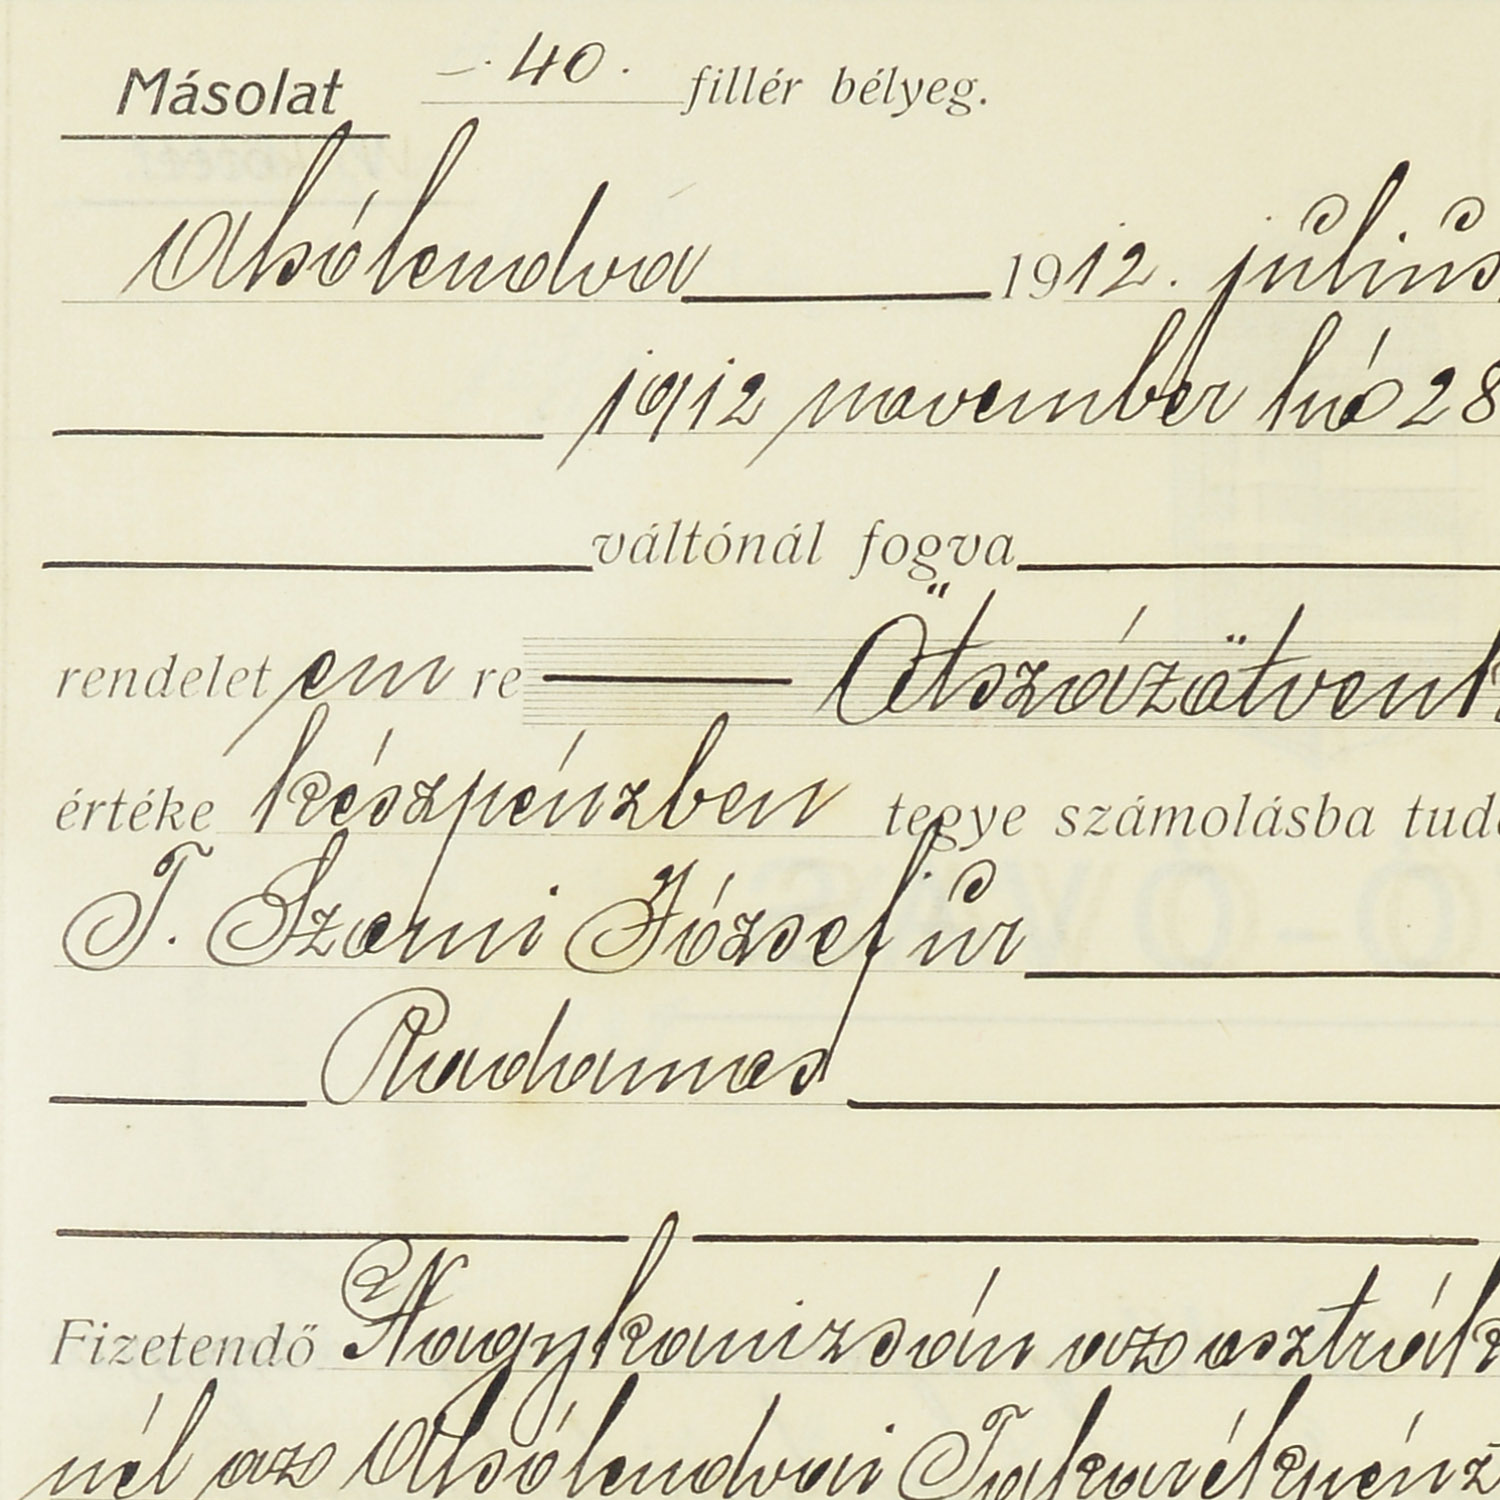 Másolat -.40. fillér bélyeg.
Alsólendva 1912. július
1912 november hó 28
váltónál fogva
rendeletem re Ötszázötven
értéke készpénzben tegye számolásba
T. Szerni József úr
Radamos
Fizetendő Nagykanizsán az
nél az Alsólendvai